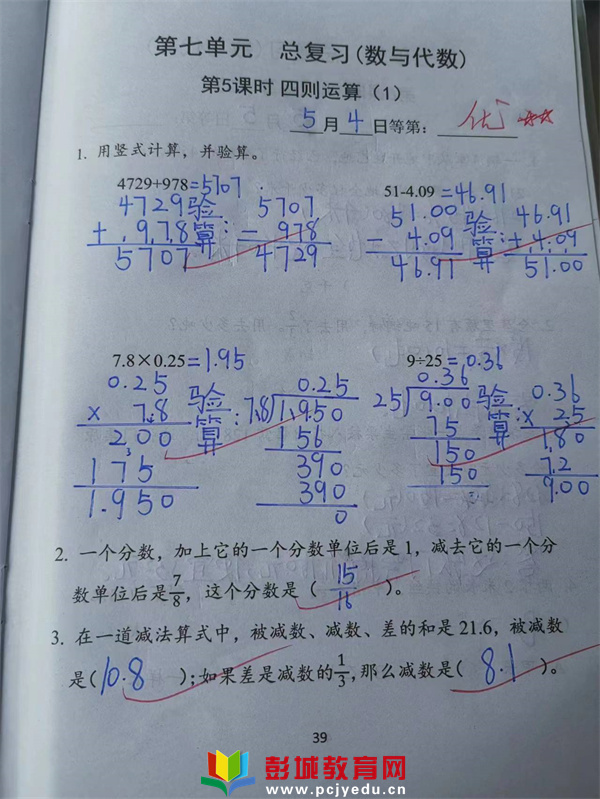 第七单元 总复习(数与代数)
第5课时 四则运算（1）
5月4日等第：优☆☆
1. 用竖式计算，并验算。
4729+978=5707
51-4.09=46.91
4729 验 5707
+ 978 算： - 978
5707 4729
51.00 验 46.91
- 4.09 算： + 4.09
46.91 51.00
7.8×0.25=1.95
9÷25=0.36
0.25 验 0.25
× 7.8 算： 7.8 1.950
200 156
175 390
1.950 390
0
0.36 验 0.36
25 9.00 算： × 25
75 1.80
150 7.2
150 9.00
0
2. 一个分数，加上它的一个分数单位后是1，减去它的一个分
数单位后是7/8，这个分数是（ 15/16 ）。
3. 在一道减法算式中，被减数、减数、差的和是21.6，被减数
是(10.8);如果差是减数的1/3，那么减数是( 8.1 )。
39
彭城教育网
www.pcjyedu.cn